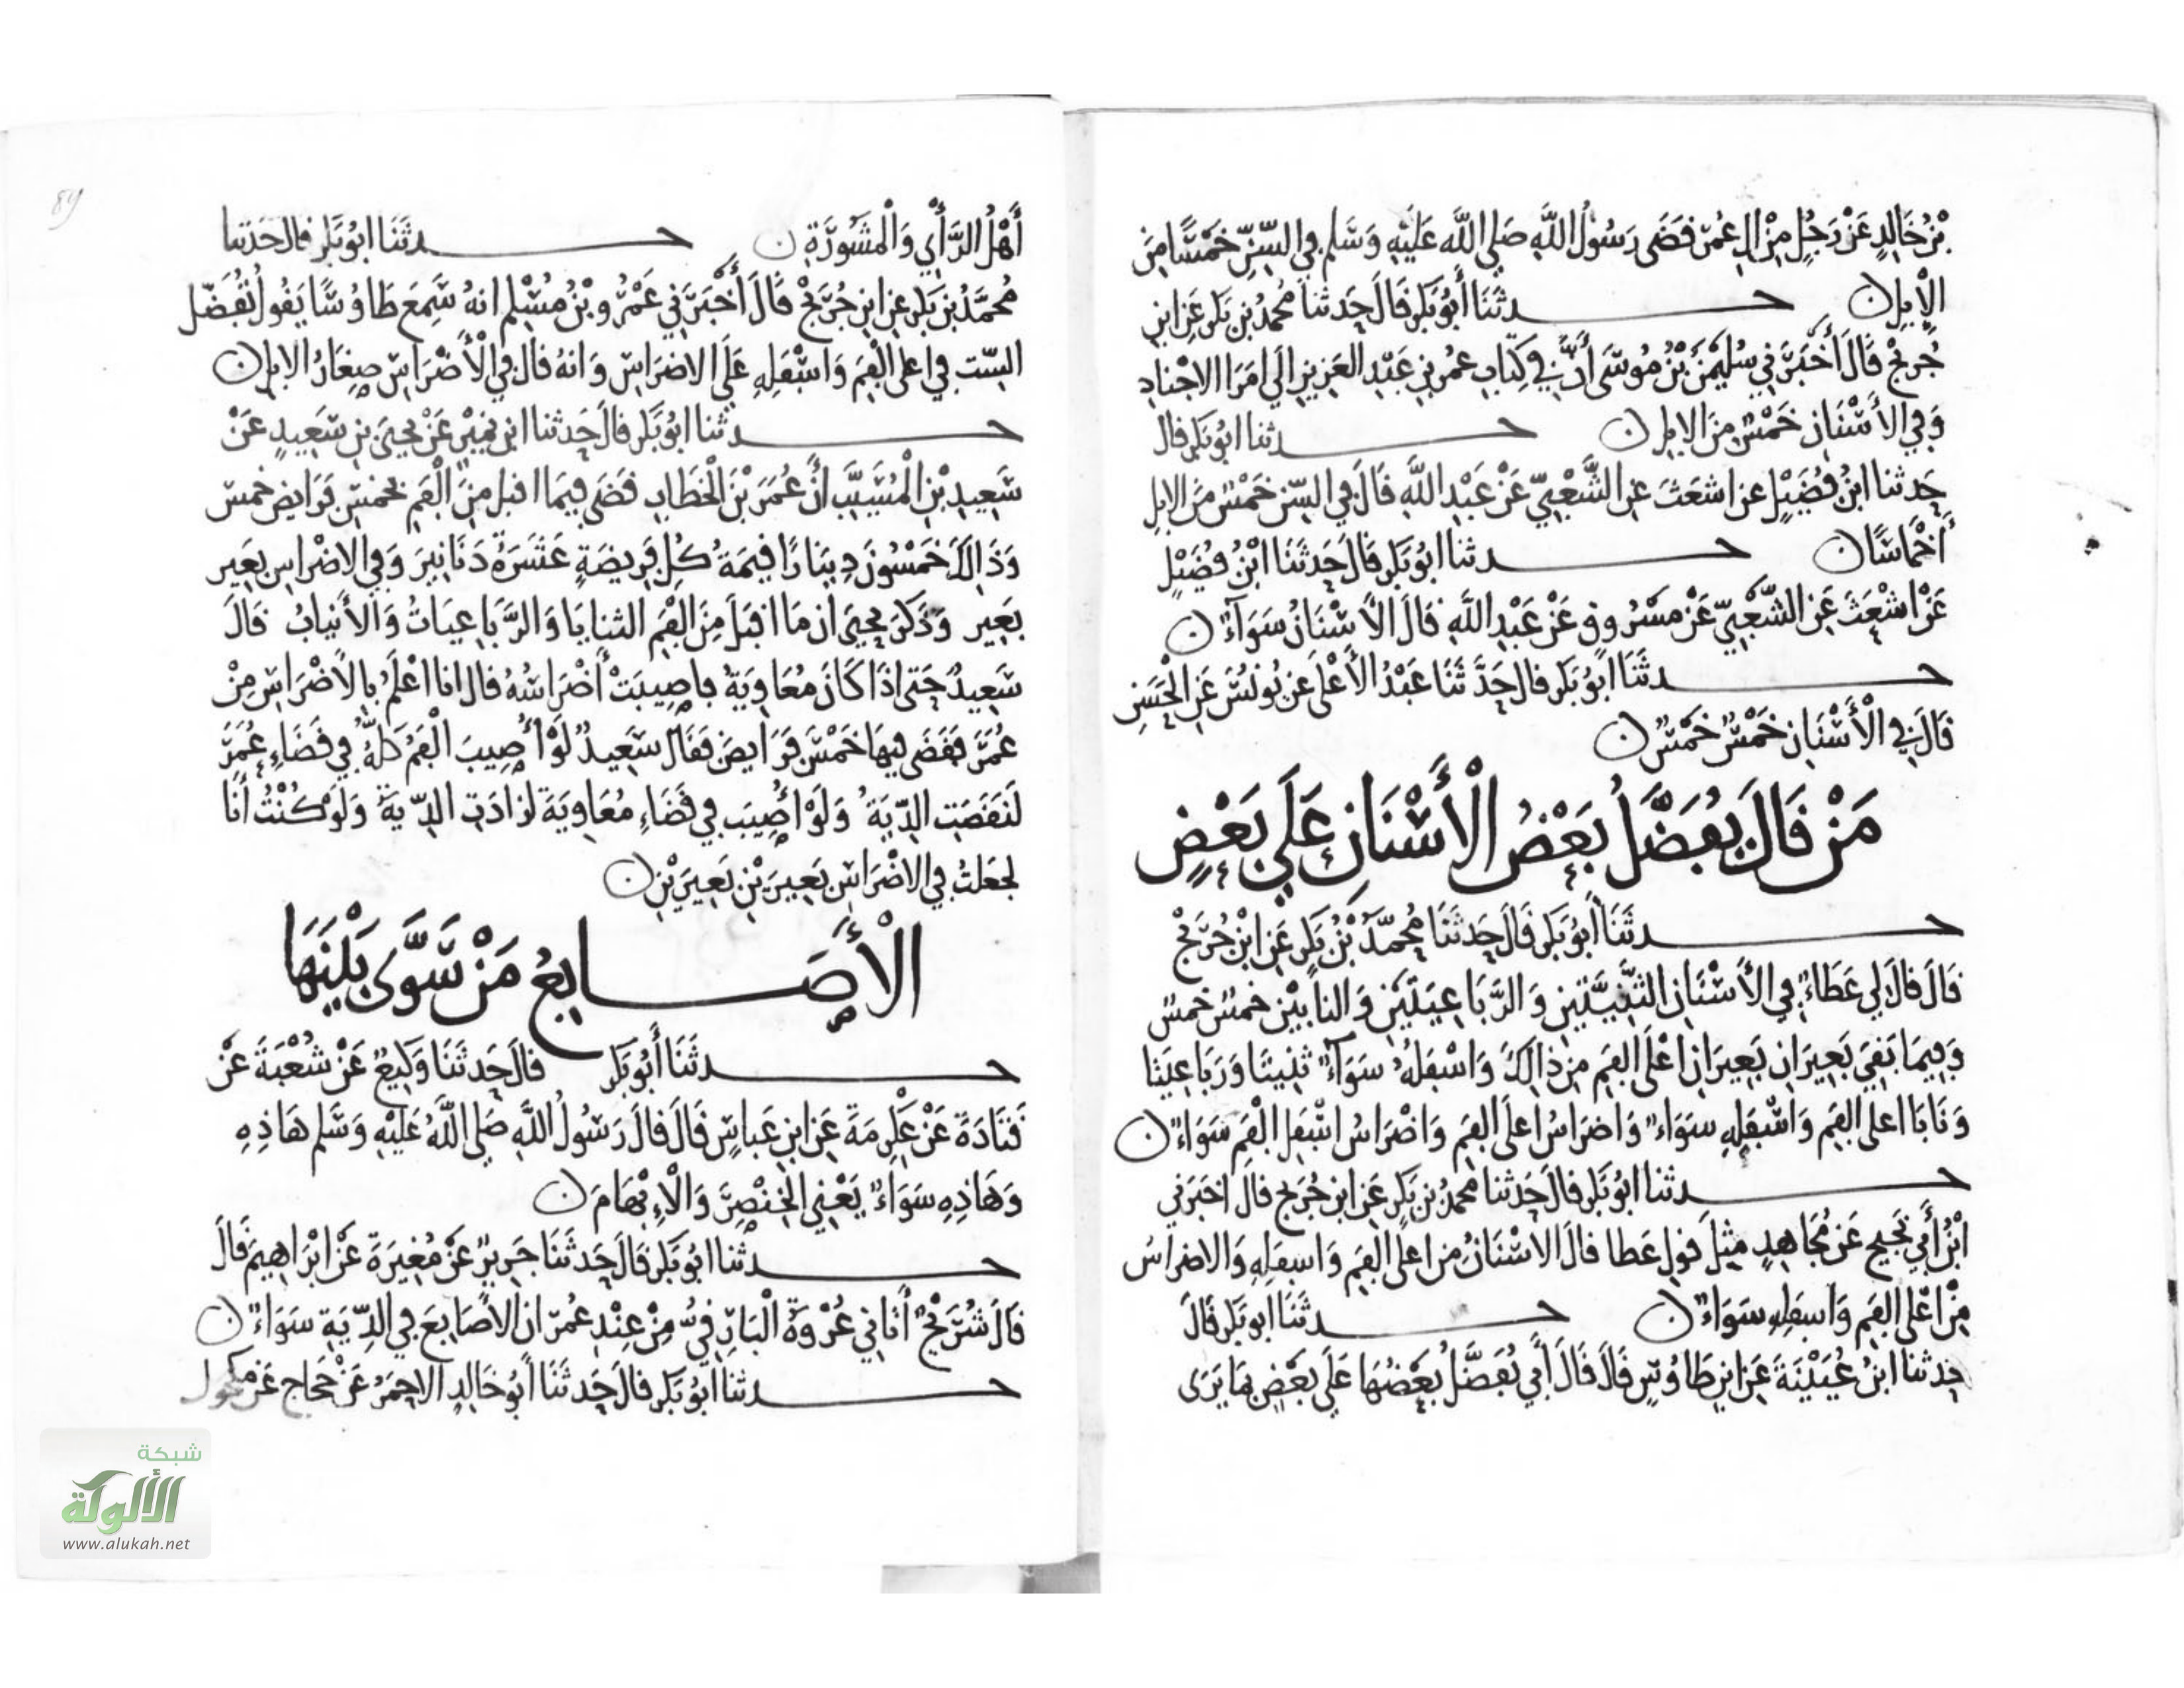 بْنِ خَالِدٍ عَنْ رَجُلٍ مِنْ الِ عُمَرَ قَضَى رَسُولُ اللَّهِ صَلى اللَّه عَلَيْهِ وَسَلم في السِّنِّ خَمْسًا مِنَ
الْإِبِلِ ن حـدثَنَا أَبُو بَكر قَالَ حَدثنا مُحمدُ بْن بَكر عَنِ ابْنِ
جُرَيج قَالَ أَخْبَرَني سُلَيْمَنُ بْنُ مُوسَى أَنَّ في كِتَابِ عُمر بْنِ عَبْدِ العَزِيزِ إلَى امَرَا الاجْنادِ
وَفِي الأَسْنَانِ خَمْسٌ مِنَ الابِل ن حـدثنا ابُو بَكر قال
حَدثنا ابْنُ فُضَيْلٍ عن اشعَثَ عنِ الشَّعْبِيّ عَنْ عَبْدِ اللَّهِ قَالَ في السِّنّ خَمْسٌ مِنَ الابل
أَخْمَاسًا ن حـدثنا ابُو بَكر قَالَ حَدثَنَا ابْنُ فُضَيْلٍ
عَنْ اشْعَثَ عَنِ الشَّعْبِيّ عَنْ مَسْرُوقٍ عَنْ عَبْدِ اللَّهِ قَالَ الأَسْنَانُ سَوَآءٌ ن
حـدثَنَا ابُو بَكر قال حَدَّثَنَا عَبْدُ الأَعْلَى عن يُونُسَ عَنِ الْحَسَنِ
قَالَ فِي الْأَسْنَانِ خَمْسٌ خَمْسٌ ن
مَنْ قَالَ يُفَضَّلُ بَعْضُ الْأَسْنَانِ عَلَى بَعْضٍ
حـدثَنَا أَبُو بَكر قَالَ حَدثَنَا مُحمَّدُ بْنُ بَكرٍ عَنِ ابْنِ جُرَيْجٍ
قَالَ قالَ لي عَطَاءٌ فِي الأَسْنَانِ الثَّنِيَّتَيْنِ وَالرَّبَاعِيَتَيْنِ وَالنابَيْنِ خمسٌ خمسٌ
وَفِيمَا بَقِيَ بَعِيرَانِ بَعِيرَانِ اعْلَى الفَمِ مِن ذالِكَ وَاسْفَلُهُ سَوَآءٌ ثَنِيتَا وَرَبَاعِيَتَا
وَنَابَا اعلى الفَمِ وَاسْفَلِهِ سَوَاءٌ وَاضرَاسُ اعلَى الفَمِ وَاضْرَاسُ اسْفلِ الْفَمِ سَوَاءٌ ن
حـدثنا ابُو بَكر قالَ حَدثنا مُحمدُ بْن بَكرٍ عَنِ ابن جُرَيج قالَ اخبَرَني
ابْنُ أَبي نَجيحٍ عَن مُجَاهِدٍ مِثلَ قولِ عَطا قالَ الاسْنَانُ من اعلَى الْفَمِ وَاسفلِهِ وَالاضراسُ
مِنْ اعْلَى الفَمِ وَاسفلِهِ سَوَاءٌ ن حـدثَنَا ابو بَكر قَالَ
حدثنا ابْنُ عُيَيْنَةَ عَنِ ابْنِ طَاوُسٍ قَالَ قَالَ أَبي يُفَضَّلُ بَعْضُهَا عَلَى بَعْضٍ بمَا يَرَى
أَهْلُ الرَّأْيِ وَالْمَشُورَةِ ن حـدثَنَا ابُو بَكر قالَ حَدثنا
مُحَمَّدُ بْن بَكر عنِ ابنِ جُرَيْجٍ قَالَ أَخْبَرَني عَمْرُو بْنُ مُسْلِم انهُ سَمِعَ طَاوُسًا يَقُولُ تُفَضَّل
السِّن في اعلى الْفَمِ وَاسْفَلِهِ عَلَى الاضرَاسِ وَانهُ قالَ فِي الْأَضْرَاسِ صِغَارُ الابل ن
حـدثنا ابُو بَكر قالَ حَدثنا ابن نُمَيْر عَنْ يحيَى بنِ سَعِيدٍ عَنْ
سَعِيدِ بْنِ الْمُسَيَّبِ أَنَّ عُمَرَ بْنَ الْخَطابِ قضَى فِيمَا اقبل مِنَ الْفَمِ بخمسِ فَرَايض خمس
وَذَالِكَ خَمْسُونَ دِينَارًا قِيمَةُ كُلِّ فَرِيضَةٍ عَشَرَةُ دَنَانِيرَ وَفي الاضْرَاسِ بَعِير
بَعِير وَذَكَرَ يَحيَى ان مَا اقبَلَ مِنَ الْفَمِ الثنايَا وَالرَّبَاعِيَاتُ وَالأَنيابُ قَالَ
سَعِيدٌ حَتى اذَا كَانَ مُعَاوِيَةُ فاصِيبَتْ أَضْرَاسُهُ قال انا اعْلَمُ بِالأَضْرَاسِ مِنْ
عُمَرَ فَقَضَى فِيهَا خَمْسَ فَرَايضَ فَقَالَ سَعِيدٌ لَوْ أُصِيبَ الْفَمُ كُلُّهُ في قَضَاءِ عُمَرَ
لَنَقَصَتِ الدِّيَةُ وَلَوْ أُصِيبَ فِي قَضَاءِ مُعَاوِيَةَ لزَادَتِ الدِّيَةُ وَلَوْ كُنْتُ أَنَا
لجعَلتُ فِي الاضْرَاسِ بَعِيرَيْنِ بَعِيرَيْنِ ن
الْأَصَـابِعُ مَنْ سَوَّى بَيْنَهَا
حـدثَنَا أَبُو بَكر قالَ حَدثَنَا وَكِيعٌ عَنْ شُعْبَةَ عَنْ
قَتَادَةَ عَنْ عِكْرِمَةَ عَنِ ابنِ عَباسٍ قَالَ قالَ رَسُولُ اللَّهِ صَلى اللَّهُ عَلَيْهِ وَسَلم هَاذِهِ
وَهَاذِهِ سَوَاءٌ يَعْنِي الخِنْصِرَ وَالْإِبْهَامَ ن
حـدثنا ابُو بَكر قَالَ حَدثَنَا جَرِيرٌ عَنْ مُغِيرَةَ عَنْ ابْرَاهِيمَ قَالَ
قَالَ شُرَيْحٌ أَتَانِي عُرْوَةُ الْبَارِقِيُّ مِنْ عِنْدِ عُمَرَ ان الأَصَابِعَ فِي الدِّيَةِ سَوَاءٌ ن
حـدثنا ابُو بَكر قالَ حَدثَنَا أَبُو خَالِدٍ الاحمَرُ عَنْ حَجاج عَن مكحول
89
شبكة
الألوكة
www.alukah.net